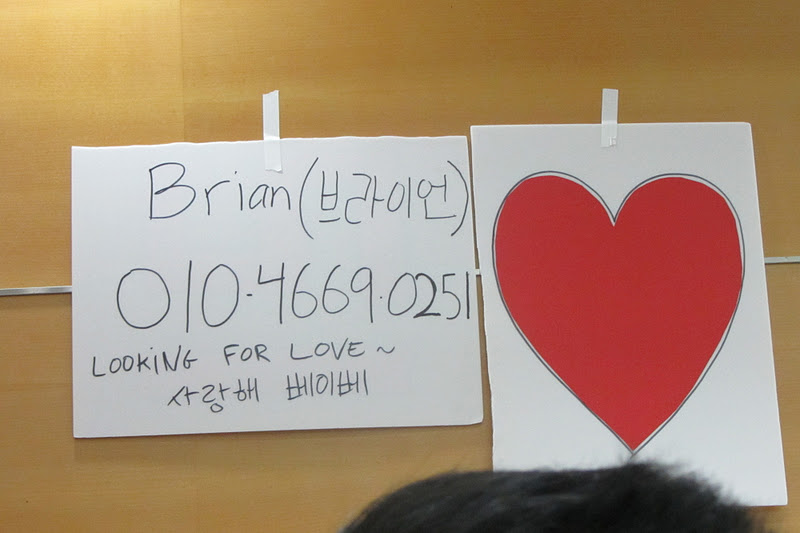 Brian (브라이언)
010·4669·0251
LOOKING FOR LOVE ~
사랑해 베이베